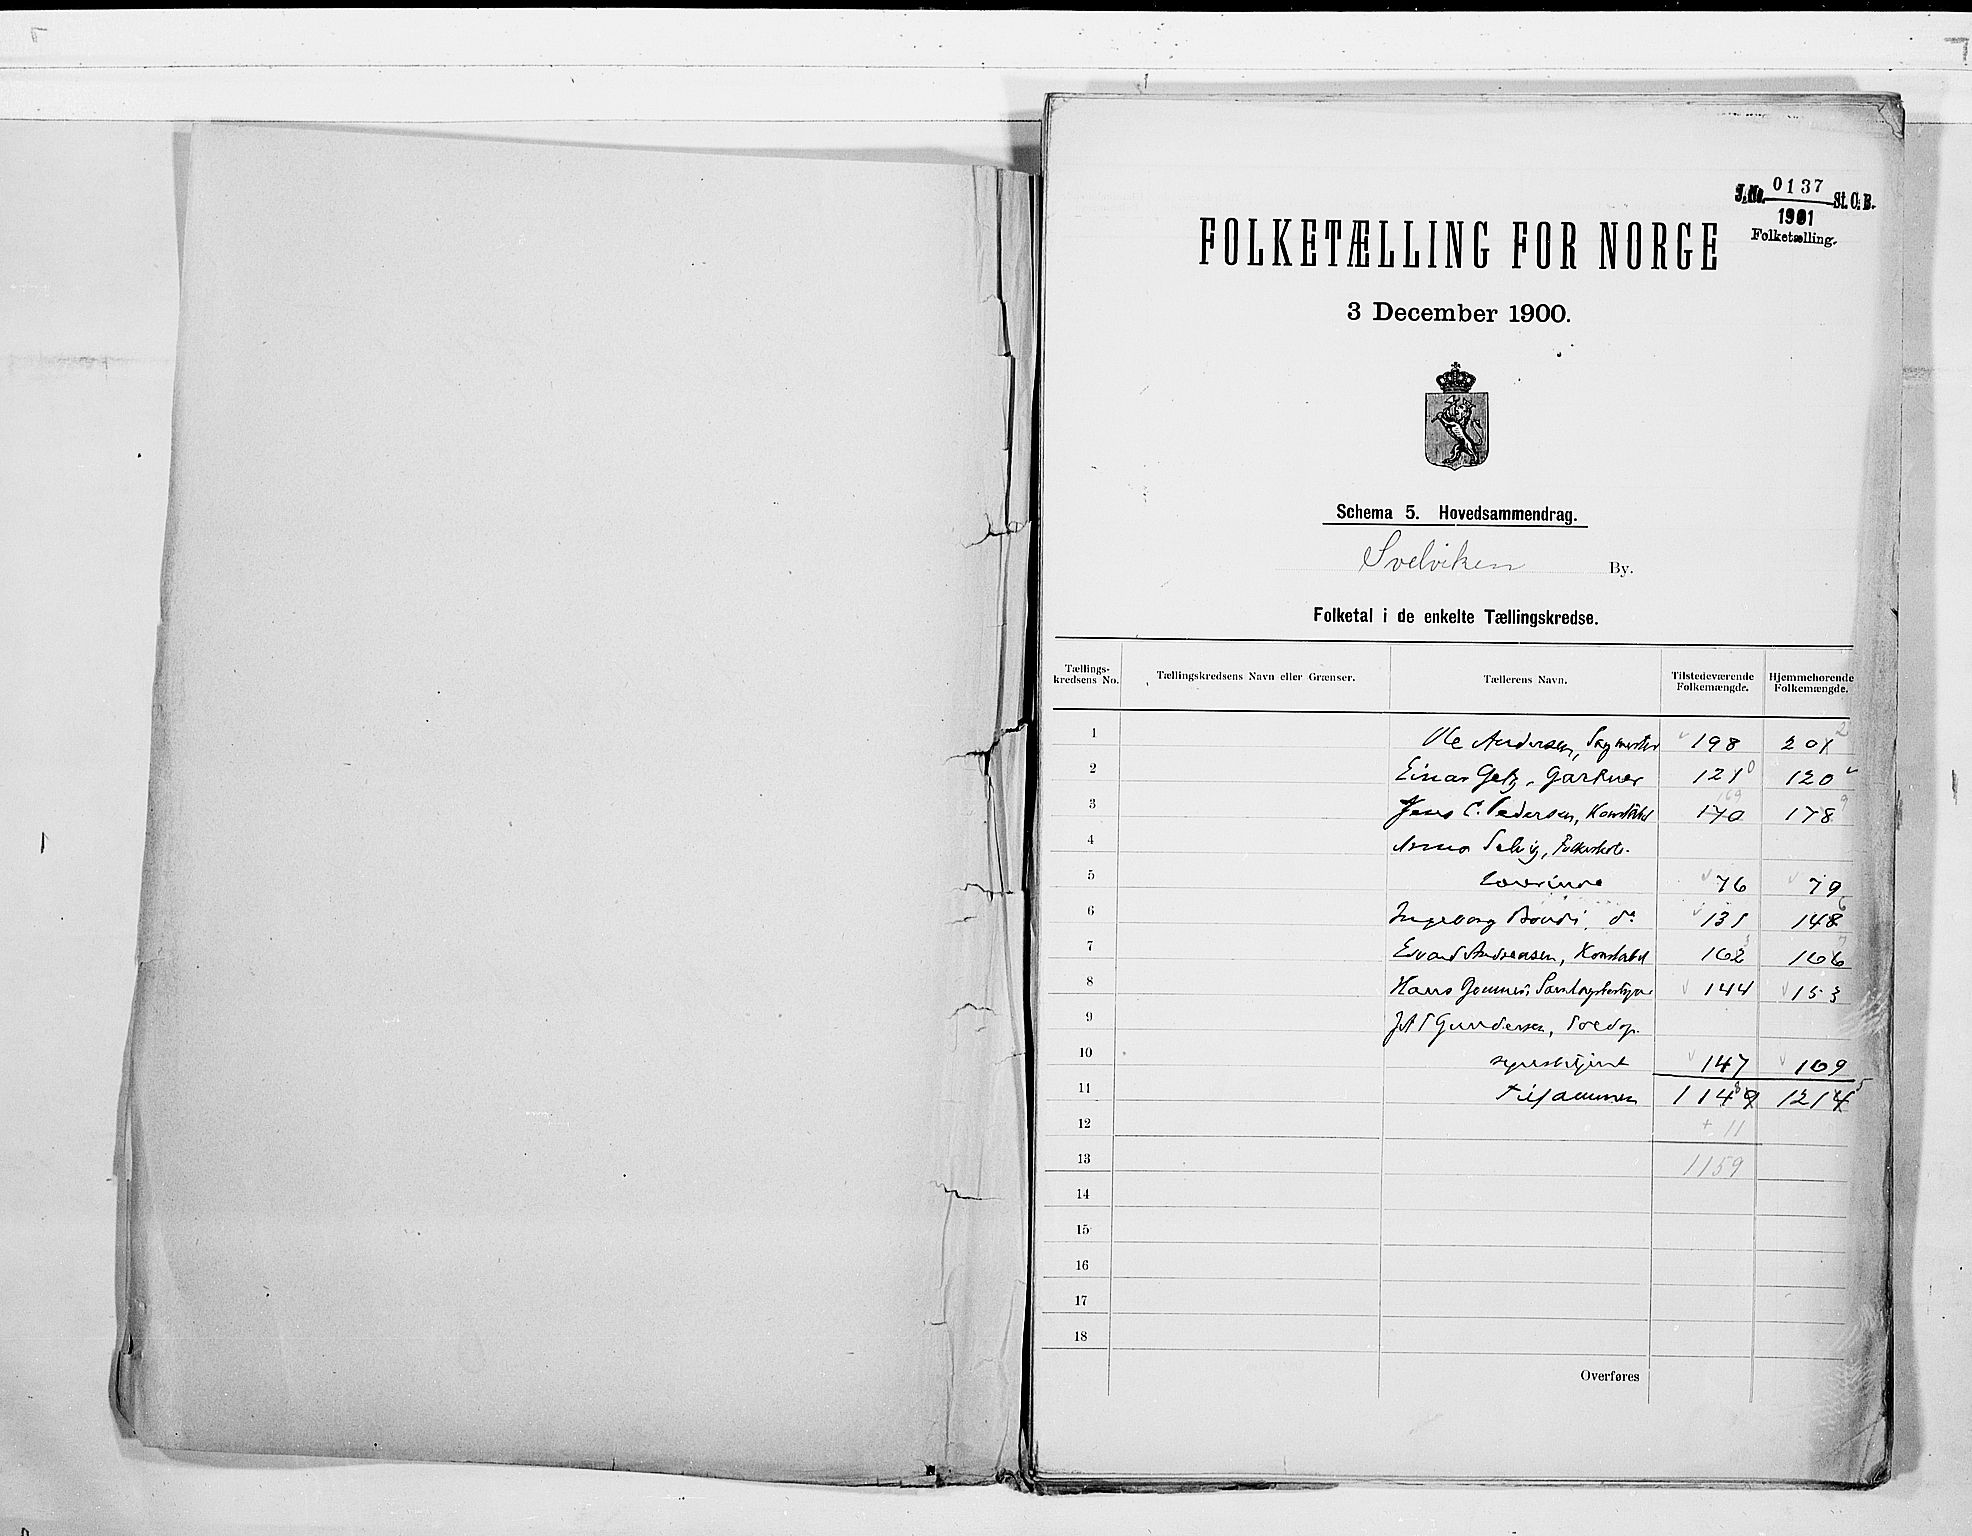 J.No. 0137 St.C.B.
1901
Folketælling.
FOLKETÆLLING FOR NORGE
3 December 1900.
Schema 5. Hovedsammendrag.
Svelviken By.
Folketal i de enkelte Tællingskredse.
Tællings-kredsens No. Tællingskredsens Navn eller Grænser. Tællerens Navn. Tilstedeværende Folkemængde. Hjemmehørende Folkemængde.
1 Ole Andersen, 198 201 2
2 Einar Getz, Gartner 121 0 120
3 Jens C. Pedersen, Konstabel 170 169 178 9
4 Anna Solvig, Folkeskole-
5 lærerinde 76 79
6 Ingeborg do 131 148 6
7 Edvard Andreasen, Konstabel 162 3 166 7
8 Hans 144 153
9 Gundersen,
10 147 169
11 Tilsammen 1149 8 1214 5
12 + 11
13 1159
14
15
16
17
18
Overføres